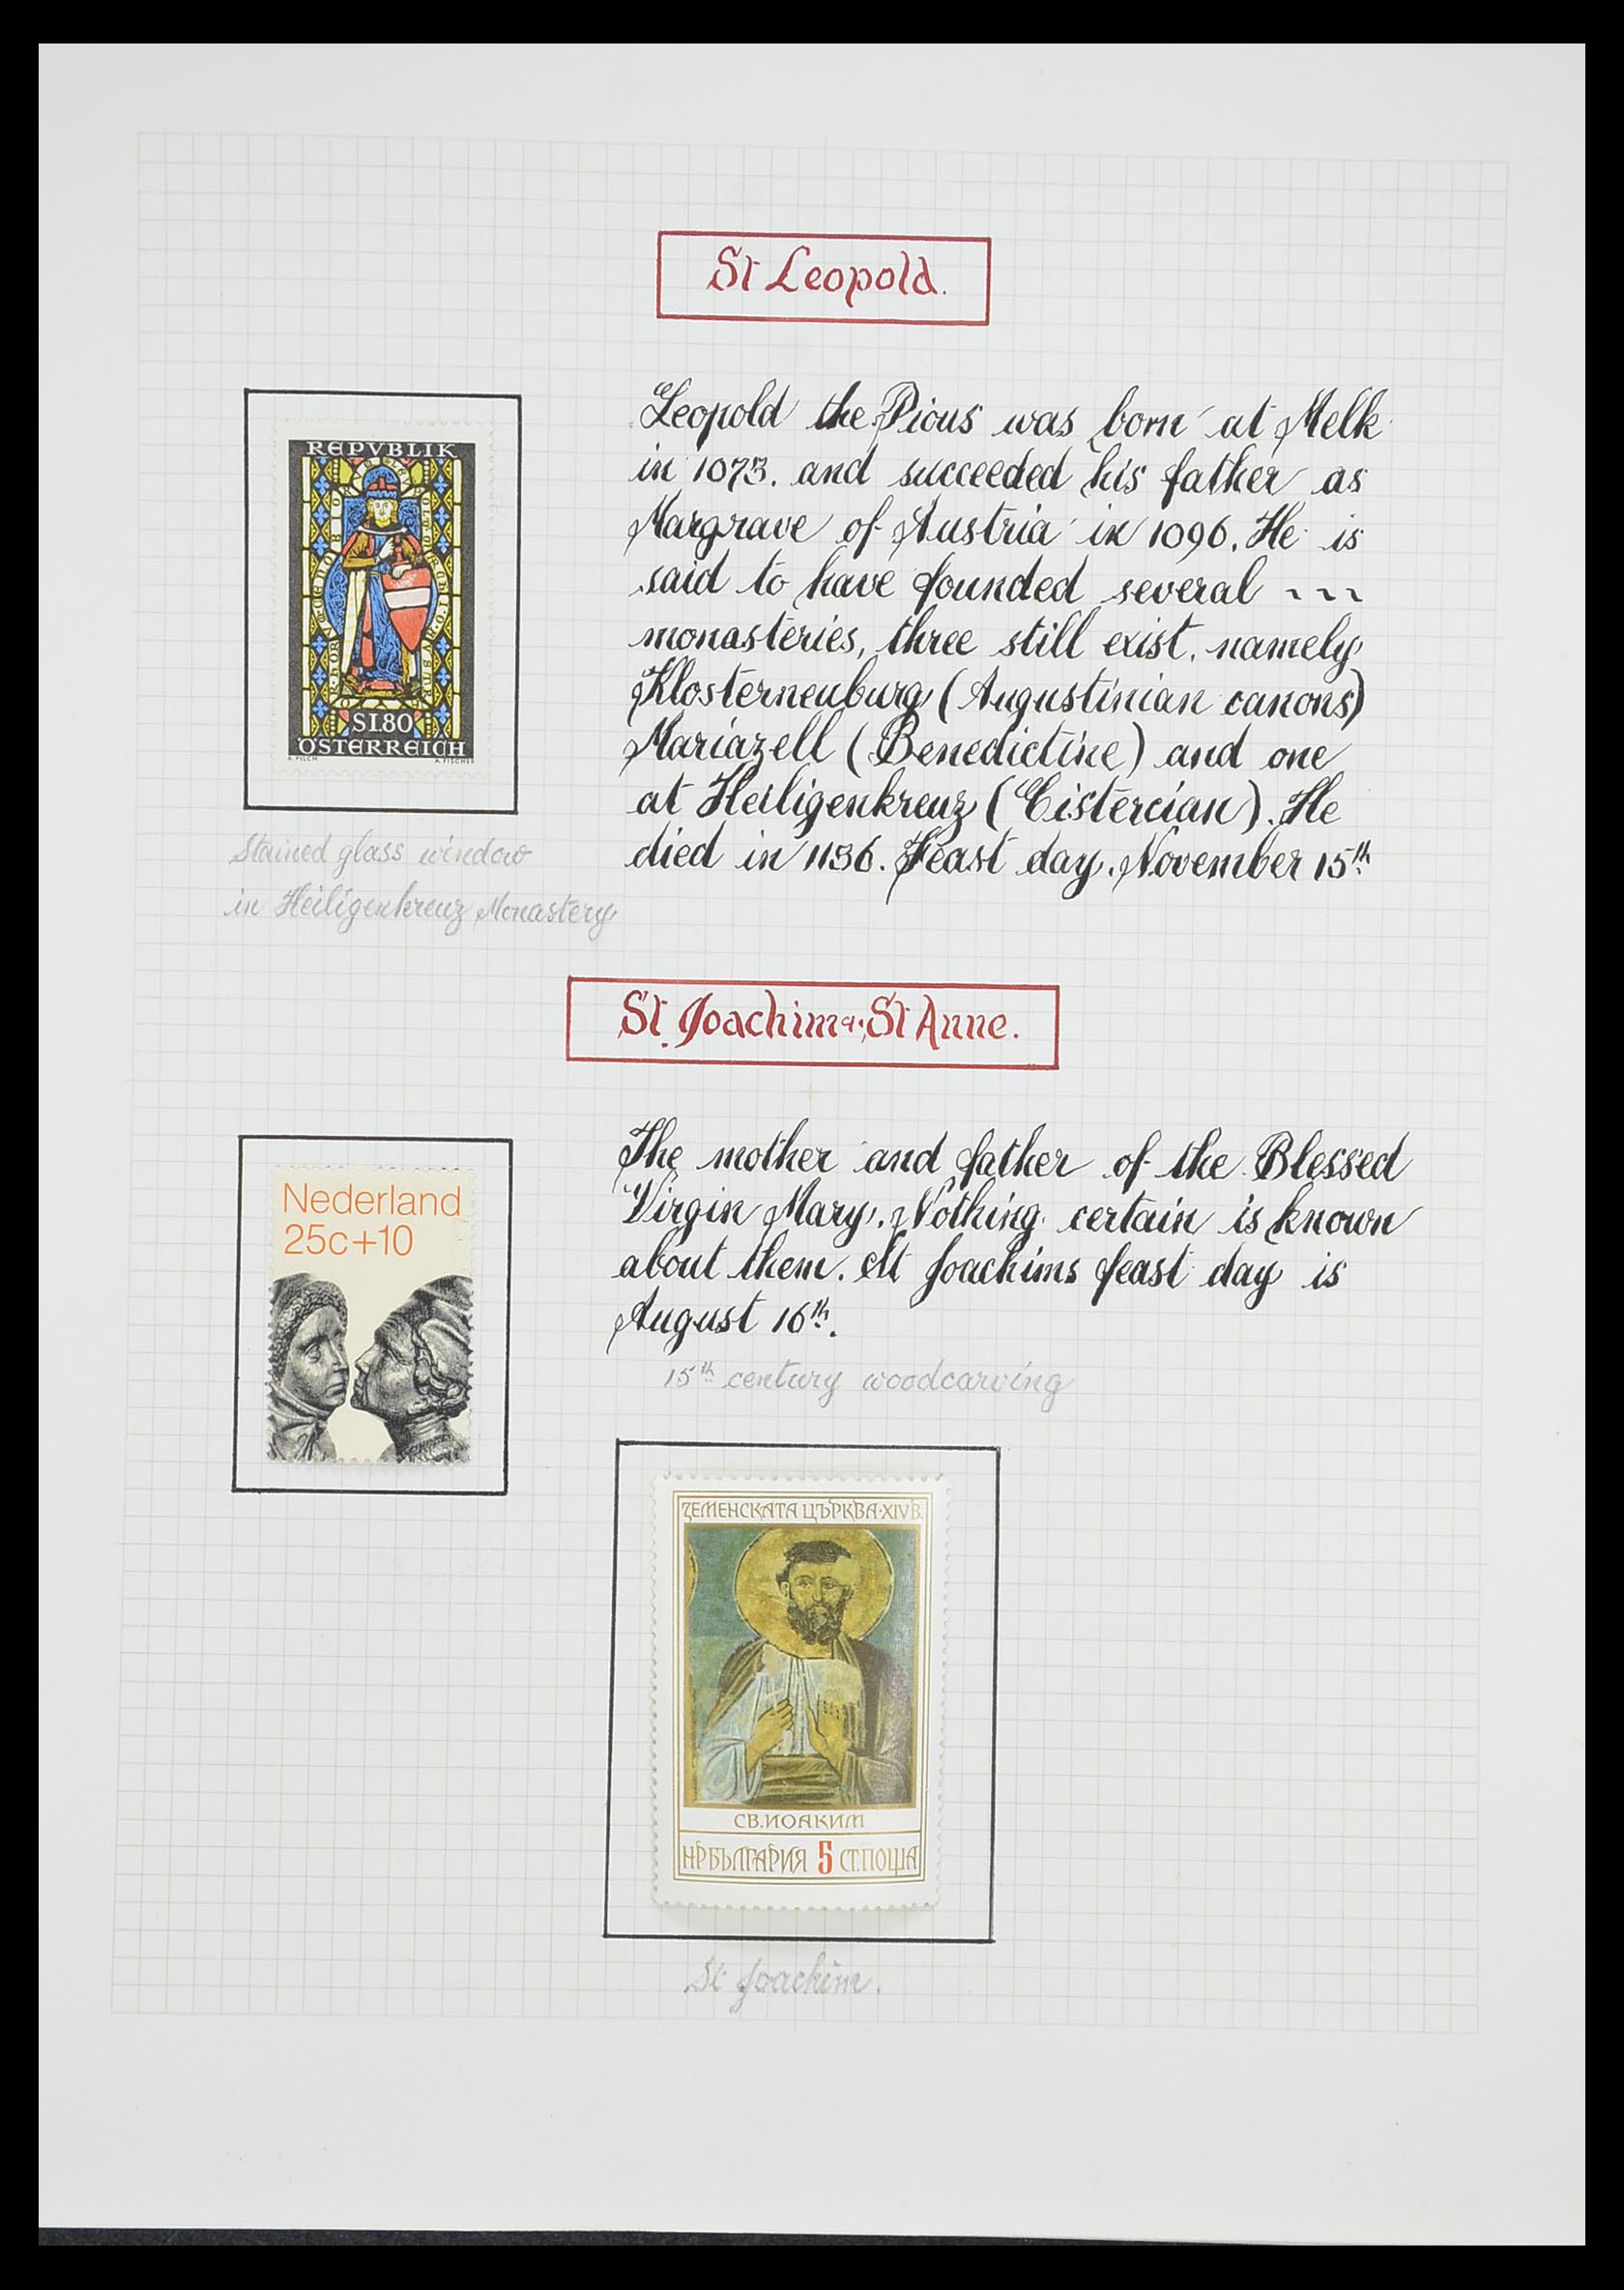 St Leopold.
REPVBLIK
S1.80
ÖSTERREICH
A. PILCH A. FISCHER
Leopold the Pious was born at Melk
in 1073. and succeeded his father as
Margrave of Austria in 1096. He is
said to have founded several ~~~
monasteries, three still exist, namely
Klosterneuburg (Augustinian canons)
Mariazell (Benedictine) and one
at Heiligenkreuz (Cistercian). He
died in 1136. Feast day. November 15th
Stained glass window
in Heiligenkreuz Monastery
St Joachim & St Anne.
Nederland
25c+10
The mother and father of the Blessed
Virgin Mary. Nothing certain is known
about them. St Joachims feast day is
August 16th.
15th century woodcarving
ЗЕМЕНСКАТА ЦЪРКВА·XIV В.
СВ. ИОАКИМ
НР БЪЛГАРИЯ 5 СТ. ПОЩА
St Joachim.